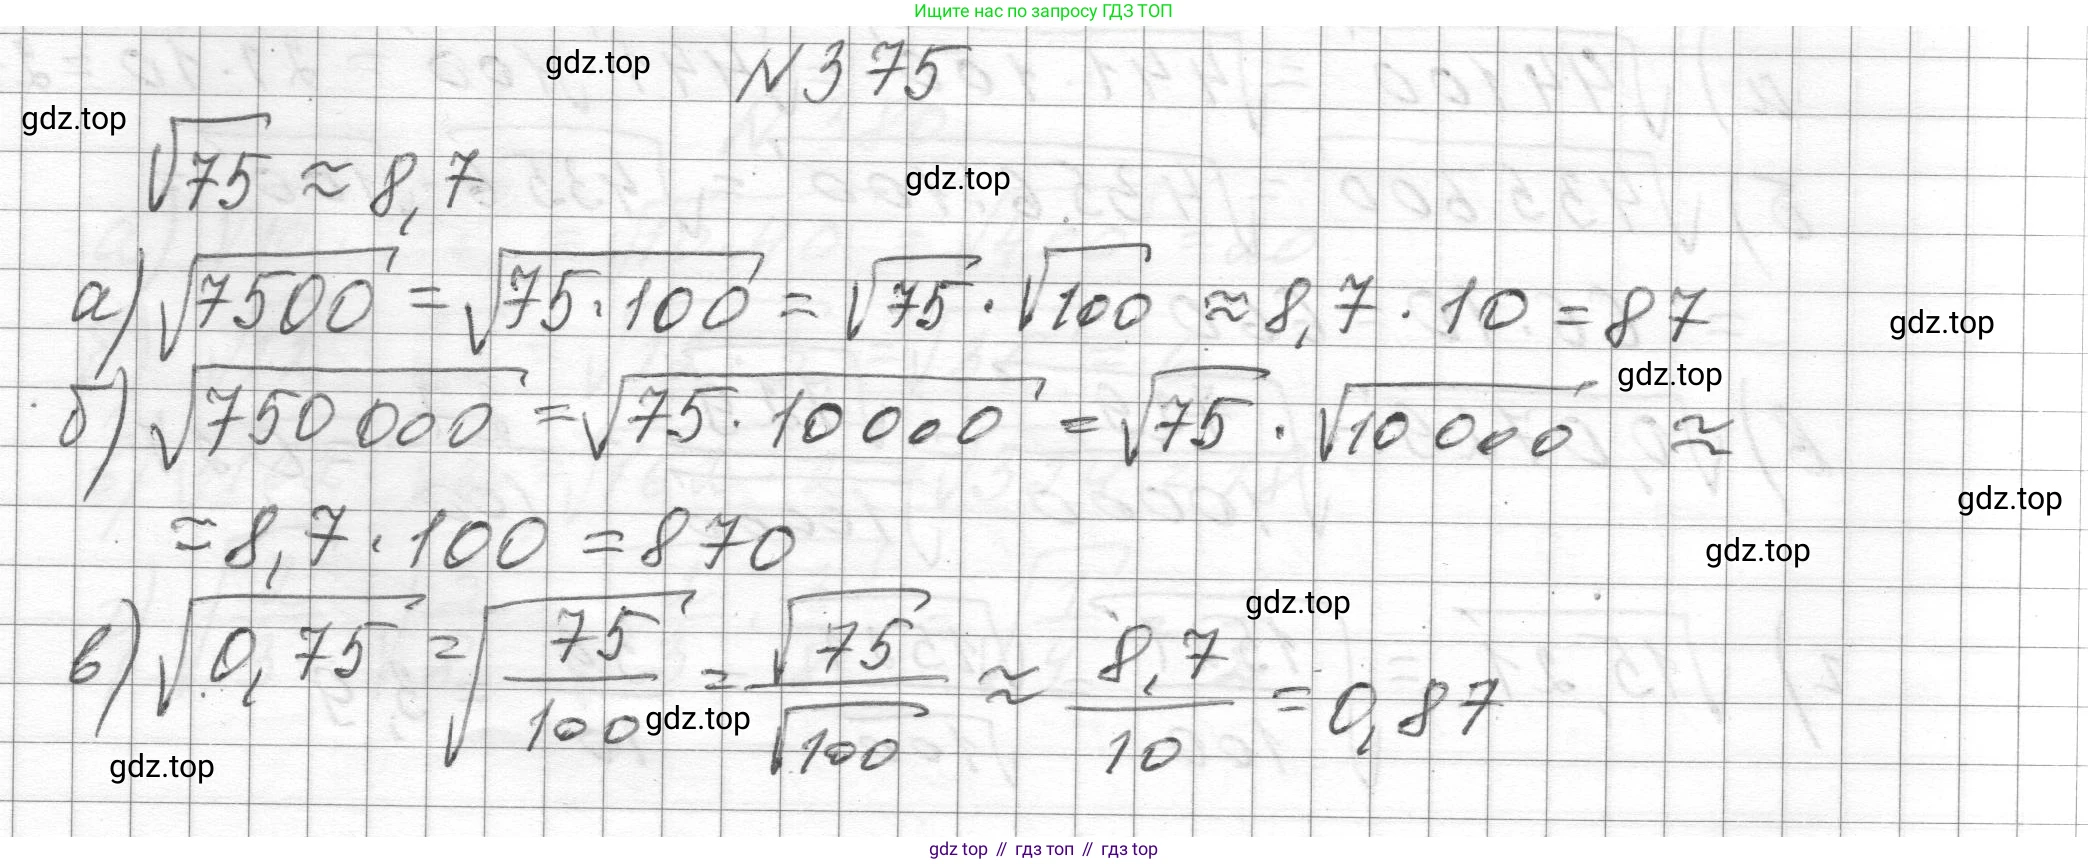 Ищите нас по запросу ГДЗ ТОП
gdz.top
№ 375
gdz.top
√75 ≈ 8,7
gdz.top
а) √7500 = √75·100 = √75 · √100 ≈ 8,7 · 10 = 87
gdz.top
gdz.top
б) √750 000 = √75·10 000 = √75 · √10 000 ≈
gdz.top
≈ 8,7 · 100 = 870
gdz.top
gdz.top
в) √0,75 = √75/100 = √75/√100 ≈ 8,7/10 = 0,87
gdz.top
gdz.top
gdz top // гдз топ // гдз top